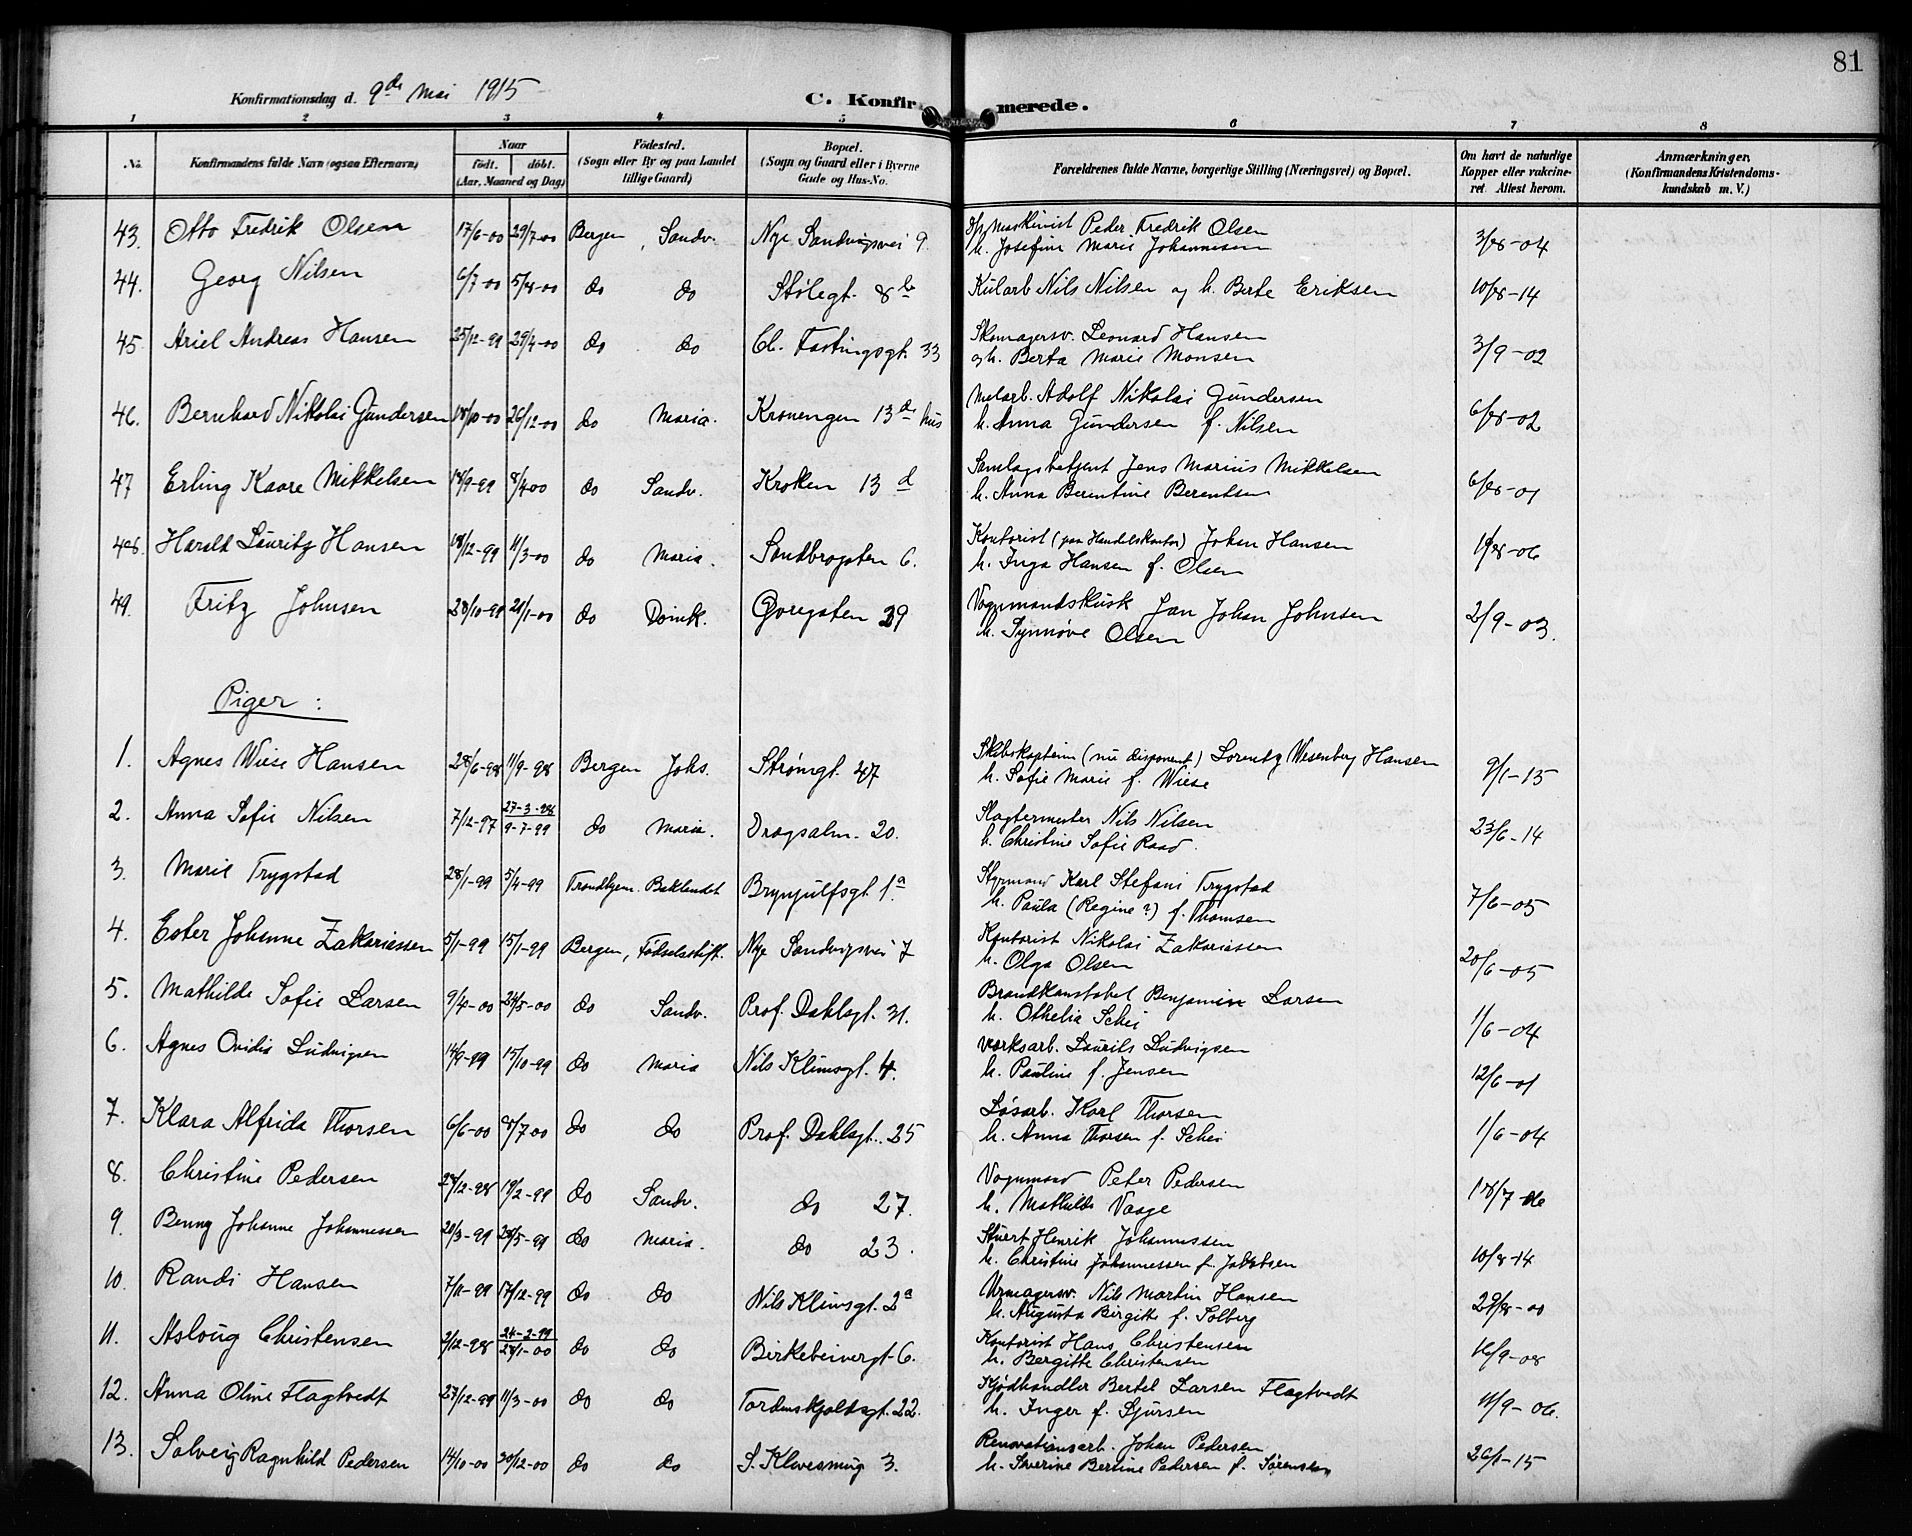 81
Konfirmationsdag d. 9de Mai 1915
C. Konfirmerede.
1 2 3 4 5 6 7 8
No. Konfirmandens fulde Navn (ogsaa Efternavn) Naar født. døbt. (Aar, Maaned og Dag) Fødested. (Sogn eller By og paa Landet tillige Gaard) Bopæl. (Sogn og Gaard eller i Byerne Gade og Hus-No. Forældrenes fulde Navne, borgerlige Stilling (Næringsvei) og Bopæl. Om havt de naturlige Kopper eller vakcineret. Attest herom. Anmærkninger. (Konfirmandens Kristendomskundskab m. V.)
43. Otto Fredrik Olsen 17/6-00 29/7-00 Bergen, Sandv. Nye Sandvigsvei 9. Maskinist Peder Fredrik Olsen
h. Josefine Marie Johannesen 3/8-04
44. Georg Nilsen 6/7-00 5/8-00 do do Stølegt. 8b Kularb Nils Nilsen og h. Berte Eriksen 10/8-14
45. Ariel Andreas Hansen 25/12-99 29/4-00 do do Cl. Fastingsgt. 33 Skomagersv. Leonard Hansen
og h. Berta Marie Monsen 3/9-02
46. Bernhard Nikolai Gundersen 18/10-00 26/12-00 do Maria. Kronengen 13de hus Murarb. Adolf Nikolai Gundersen
h. Anna Gundersen f. Nilsen 6/8-02
47 Erling Kaare Mikkelsen 18/9-99 8/4-00 do Sandv. Kroken 13d Samlagsbetjent Jens Marius Mikkelsen
h. Anna Berentine Berentsen 6/8-01
48. Harald Lauritz Hansen 18/12-99 11/3-00 do Maria. Sandbrogaten 6. Kontorist (paa Handelskontor) Johan Hansen
h. Inga Hansen f. Olsen 1/8-06
49. Fritz Johnsen 28/10-99 21/1-00 do Domk. Øvregaten 29 Vognmandskusk Jan Johan Johnsen
h. Synnøve Olsen 2/9-03.
Piger:
1. Agnes Wiese Hansen 28/6-98 11/9-98 Bergen Johs. Strømgt. 47 Skibskaptein (nu disponent) Lorentz Wesenberg Hansen
h. Sofie Marie f. Wiese 9/1-15
2. Anna Sofie Nilsen 7/12-97 27-3-98
9-7-99 do Maria. Dragsalm. 20. Slagtermester Nils Nilsen
h. Christine Sofie Raad. 23/6-14
3. Marie Trygstad 28/1-99 5/4-99 Trondhjem. Baklandet Brynjulfsgt 1a Styrmand Karl Stefani Trygstad
h. Paula (Regine?) f. Thomsen 7/6-05
4. Ester Johanne Zakariassen 5/1-99 15/1-99 Bergen, Fødselsstift. Nye Sandvigsvei 7 Kontorist Nikolai Zakariassen
h. Olga Olsen 20/6-05
5. Mathilde Sofie Larsen 9/4-00 24/5-00 do Sandv. Prof. Dahlsgt. 31. Brandkonstabel Benjamin Larsen
h. Othelia Schei 1/6-04
6. Agnes Ovidia Ludvigsen 14/9-99 15/10-99 do Maria Nils Klimsgt. 4. Verksarb. Laurits Ludvigsen
h. Pauline f. Jensen 12/6-01
7. Klara Alfrida Thorsen 6/6-00 8/7-00 do do Prof. Dahlsgt. 25 Løsarb. Karl Thorsen
h. Anna Thorsen f. Schei 1/6-04
8. Christine Pedersen 28/12-98 19/2-99 do Sandv. do 27. Vognmand Peter Pedersen
h. Mathilde Vaage 18/7-06
9. Benny Johanne Johannessen 20/3-99 28/5-99 do Maria. do 23. Stuert Henrik Johannessen
h. Christine Johannessen f. Jakobsen 10/8-14
10. Randi Hansen 7/11-99 17/12-99 do do Nils Klimsgt. 2a Urmagersv. Nils Martin Hansen
h. Augusta Birgitte f. Solberg 29/8-00
11. Aslaug Christensen 2/12-98 24-2-99
28/1-00 do do Birkebeinergt. 6. Kontorist Hans Christensen
h. Bergitte Christensen 16/9-08
12. Anna Oline Flagtvedt 27/12-99 11/3-00 do do Tordenskjoldsgt. 22. Kjødhandler Bertel Larsen Flagtvedt
h. Inger f. Sjursen 11/9-06.
13. Solveig Ragnhild Pedersen 14/10-00 30/12-00 do do S. Klevesmug 3. Renovationsarb. Johan Pedersen
h. Severine Bertine Pedersen f. Sørensen 26/1-15